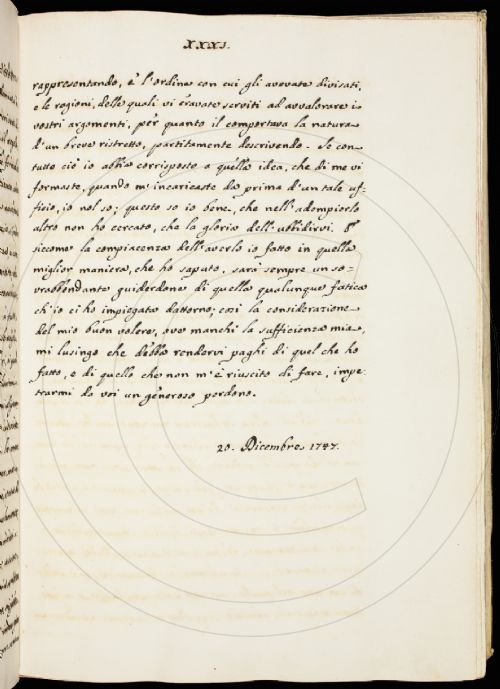 XXXI.
rappresentando, e l'ordine con cui gli avevate divisati,
e le ragioni, delle quali vi eravate serviti ad avvalorare i
vostri argomenti, per quanto il comportava la natura
d'un breve ristretto, partitamente descrivendo. Se con
tutto ciò io abbia corrisposto a quella idea, che di me vi
formaste, quando m'incaricaste da prima d'un tale uf-
ficio, io nol so; questo so io bene, che nell'adempierlo
altro non ho cercato, che la gloria dell'ubbidirvi. E
siccome la compiacenza dell'averlo io fatto in quella
miglior maniera, che ho saputo, sarà sempre un so-
vrabbondante guiderdone di quella qualunque fatica
ch'io ci ho impiegata dattorno; così la considerazione
del mio buon volere, ove manchi la sufficienza mia,
mi lusingo che debba rendervi paghi di quel che ho
fatto, e di quello che non m'è riuscito di fare, impe-
trarmi da voi un generoso perdono.
20. Dicembre 1747.